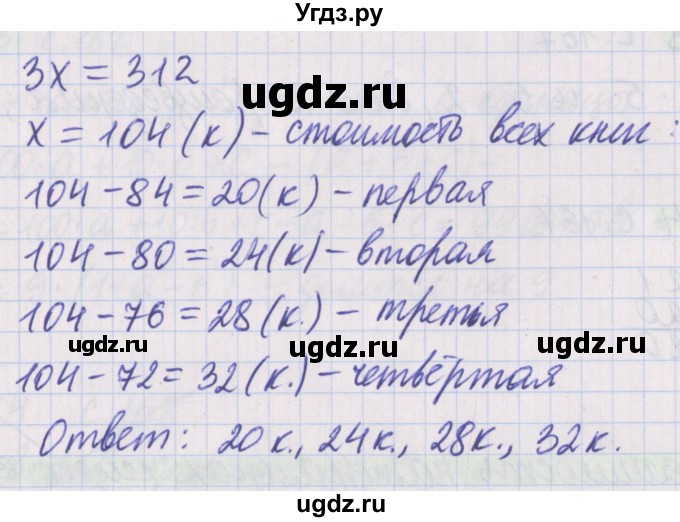 Угдз.ру
3x = 312
ugdz.ru
x = 104 (к) – стоимость всех книг :
104 – 84 = 20(к) – первая
ugdz.ru
104 – 80 = 24(к) – вторая
ugdz.ru
104 – 76 = 28 (к.) – третья
ugdz.ru ugdz.ru ugdz.ru
104 – 72 = 32 (к.) – четвёртая
ugdz.ru
Ответ: 20 к., 24 к., 28 к., 32 к.
ugdz.ru